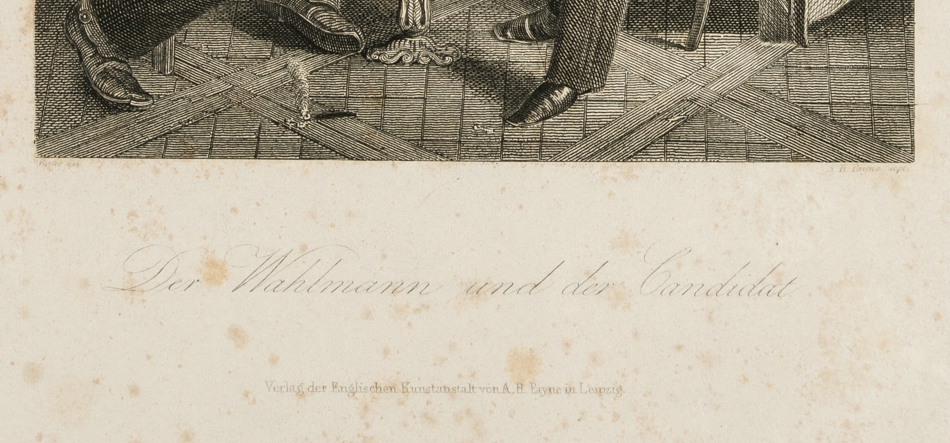 Der Wahlmann und der Candidat
Verlag der Englischen Kunstanstalt von A. H. Payne in Leipzig.